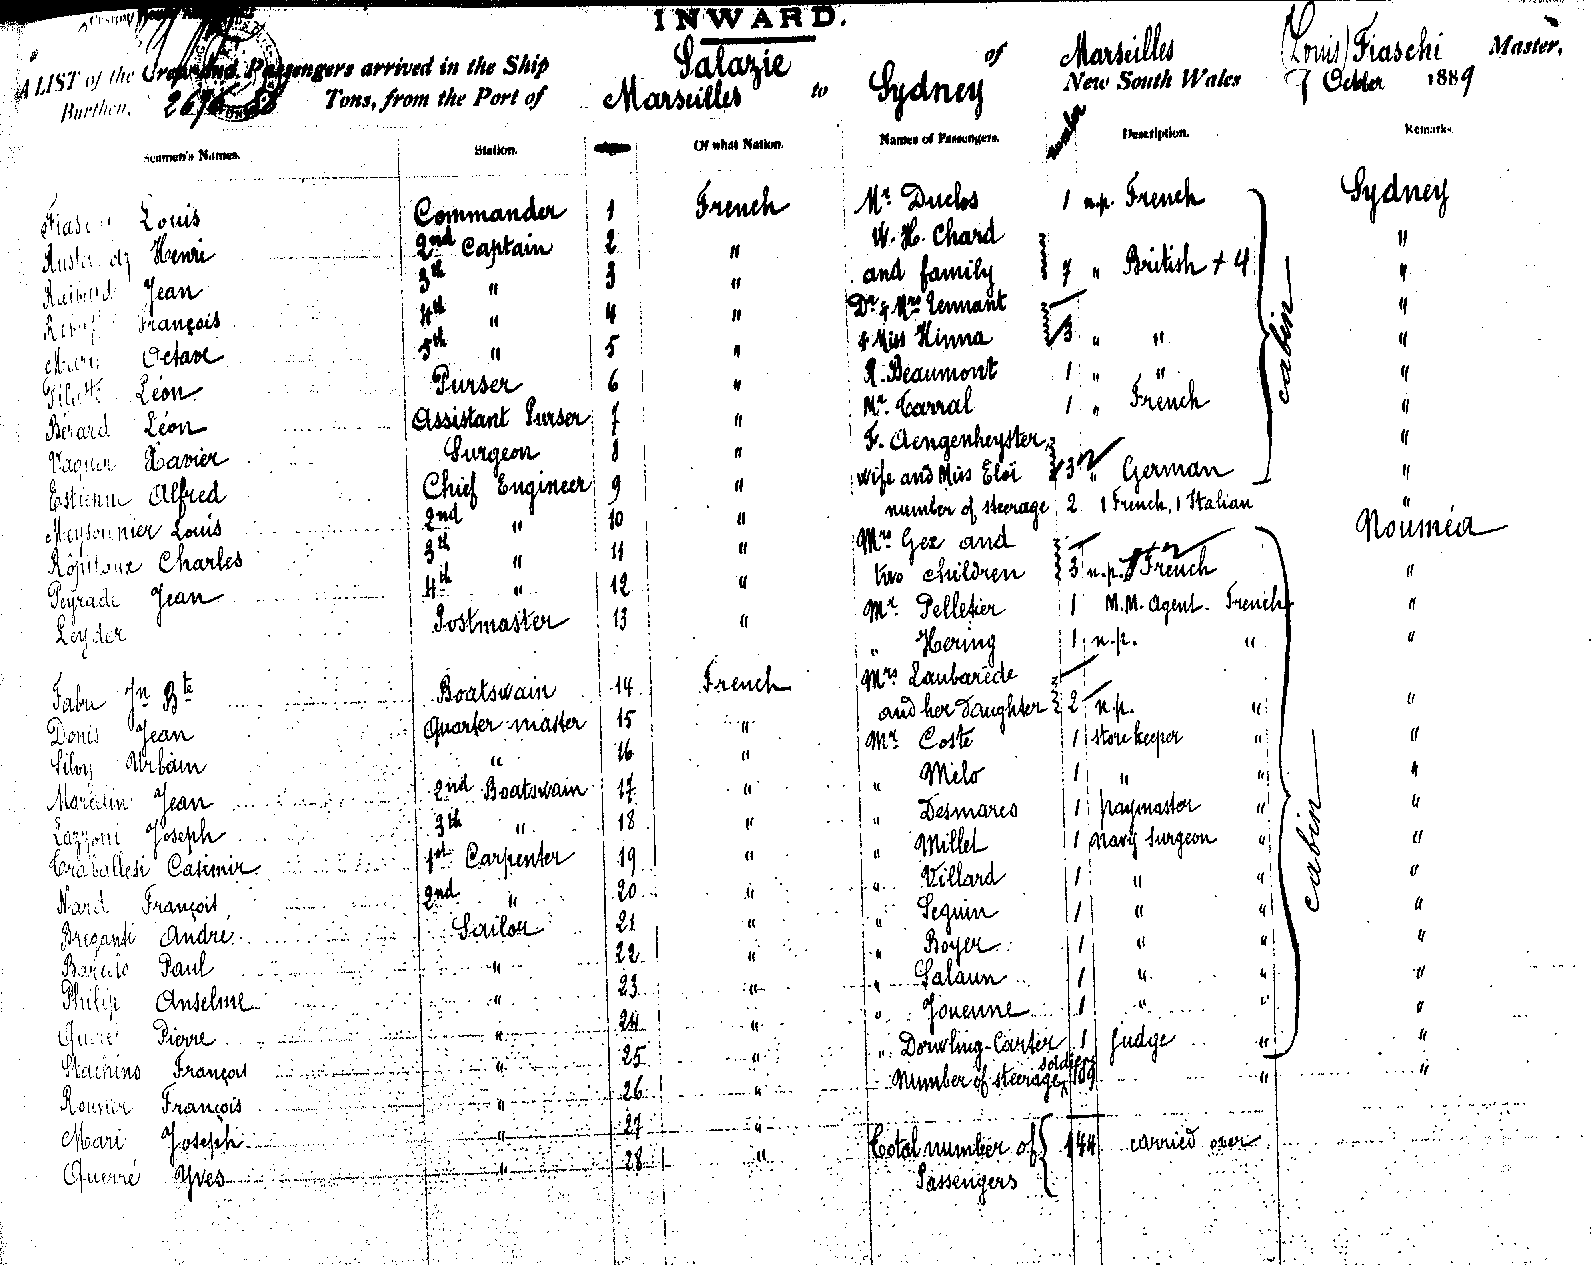 INWARD.
A LIST of the Crew and Passengers arrived in the Ship Salazie of Marseilles (Louis) Fiaschi Master,
Burthen, 2676 Tons, from the Port of Marseilles to Sydney New South Wales 7 October 1889
Seamen's Names. Station. Of what Nation. Names of Passengers. Number Description. Remarks
Louis Commander 1 French Mr. Duclos 1 n.p. French Sydney
Henri 2nd Captain 2 " W. H. Chard "
Jean 3th " 3 " and family 7 " British + 4 "
François 4th " 4 " Dr & Mrs Tennant "
Octave 5th " 5 " & Miss Hinna 3 " " "
Léon Purser 6 " R. Beaumont 1 " " "
Bérard Léon Assistant Purser 7 " Mr. Carral 1 " French "
Xavier Surgeon 8 " F. Aengenheyster "
Estienne Alfred Chief Engineer 9 " wife and Miss Eloï 3 " German "
Meysonnier Louis 2nd " 10 " number of steerage 2 1 French, 1 Italian "
Charles 3th " 11 " Mrs Gex and Nouméa
Peyrade Jean 4th " 12 " two children 3 n.p. French "
Leyder Postmaster 13 " Mr. Pelletier 1 M.M. Agent. French "
" Hering 1 n.p. " "
Jn Bte Boatswain 14 French Mrs Laubarède
Donis Jean Quarter master 15 " and her daughter 2 n.p. " "
Urbain " 16 " Mr. Coste 1 store keeper " "
Jean 2nd Boatswain 17 " " Melo 1 " " "
Lazzoni Joseph 3th " 18 " " Desmares 1 paymaster " "
Traballesi Casimir 1st Carpenter 19 " " Millet 1 Navy Surgeon " "
Nard François 2nd " 20 " " Villard 1 " "
Breganti Andre Sailor 21 " " Seguin 1 " " "
Paul " 22 " " Boyer 1 " " "
Philip Anselme " 23 " " Salaun 1 " " "
Pierre " 24 " " Jouenne 1 " " "
Stachino François " 25 " " Dowling-Carter 1 judge " "
François " 26 " Number of steerage, soldiers 109 " "
Mari Joseph " 27 "
Querré Yves " 28 " Total number of 144 carried over
Passengers
cabin
cabin